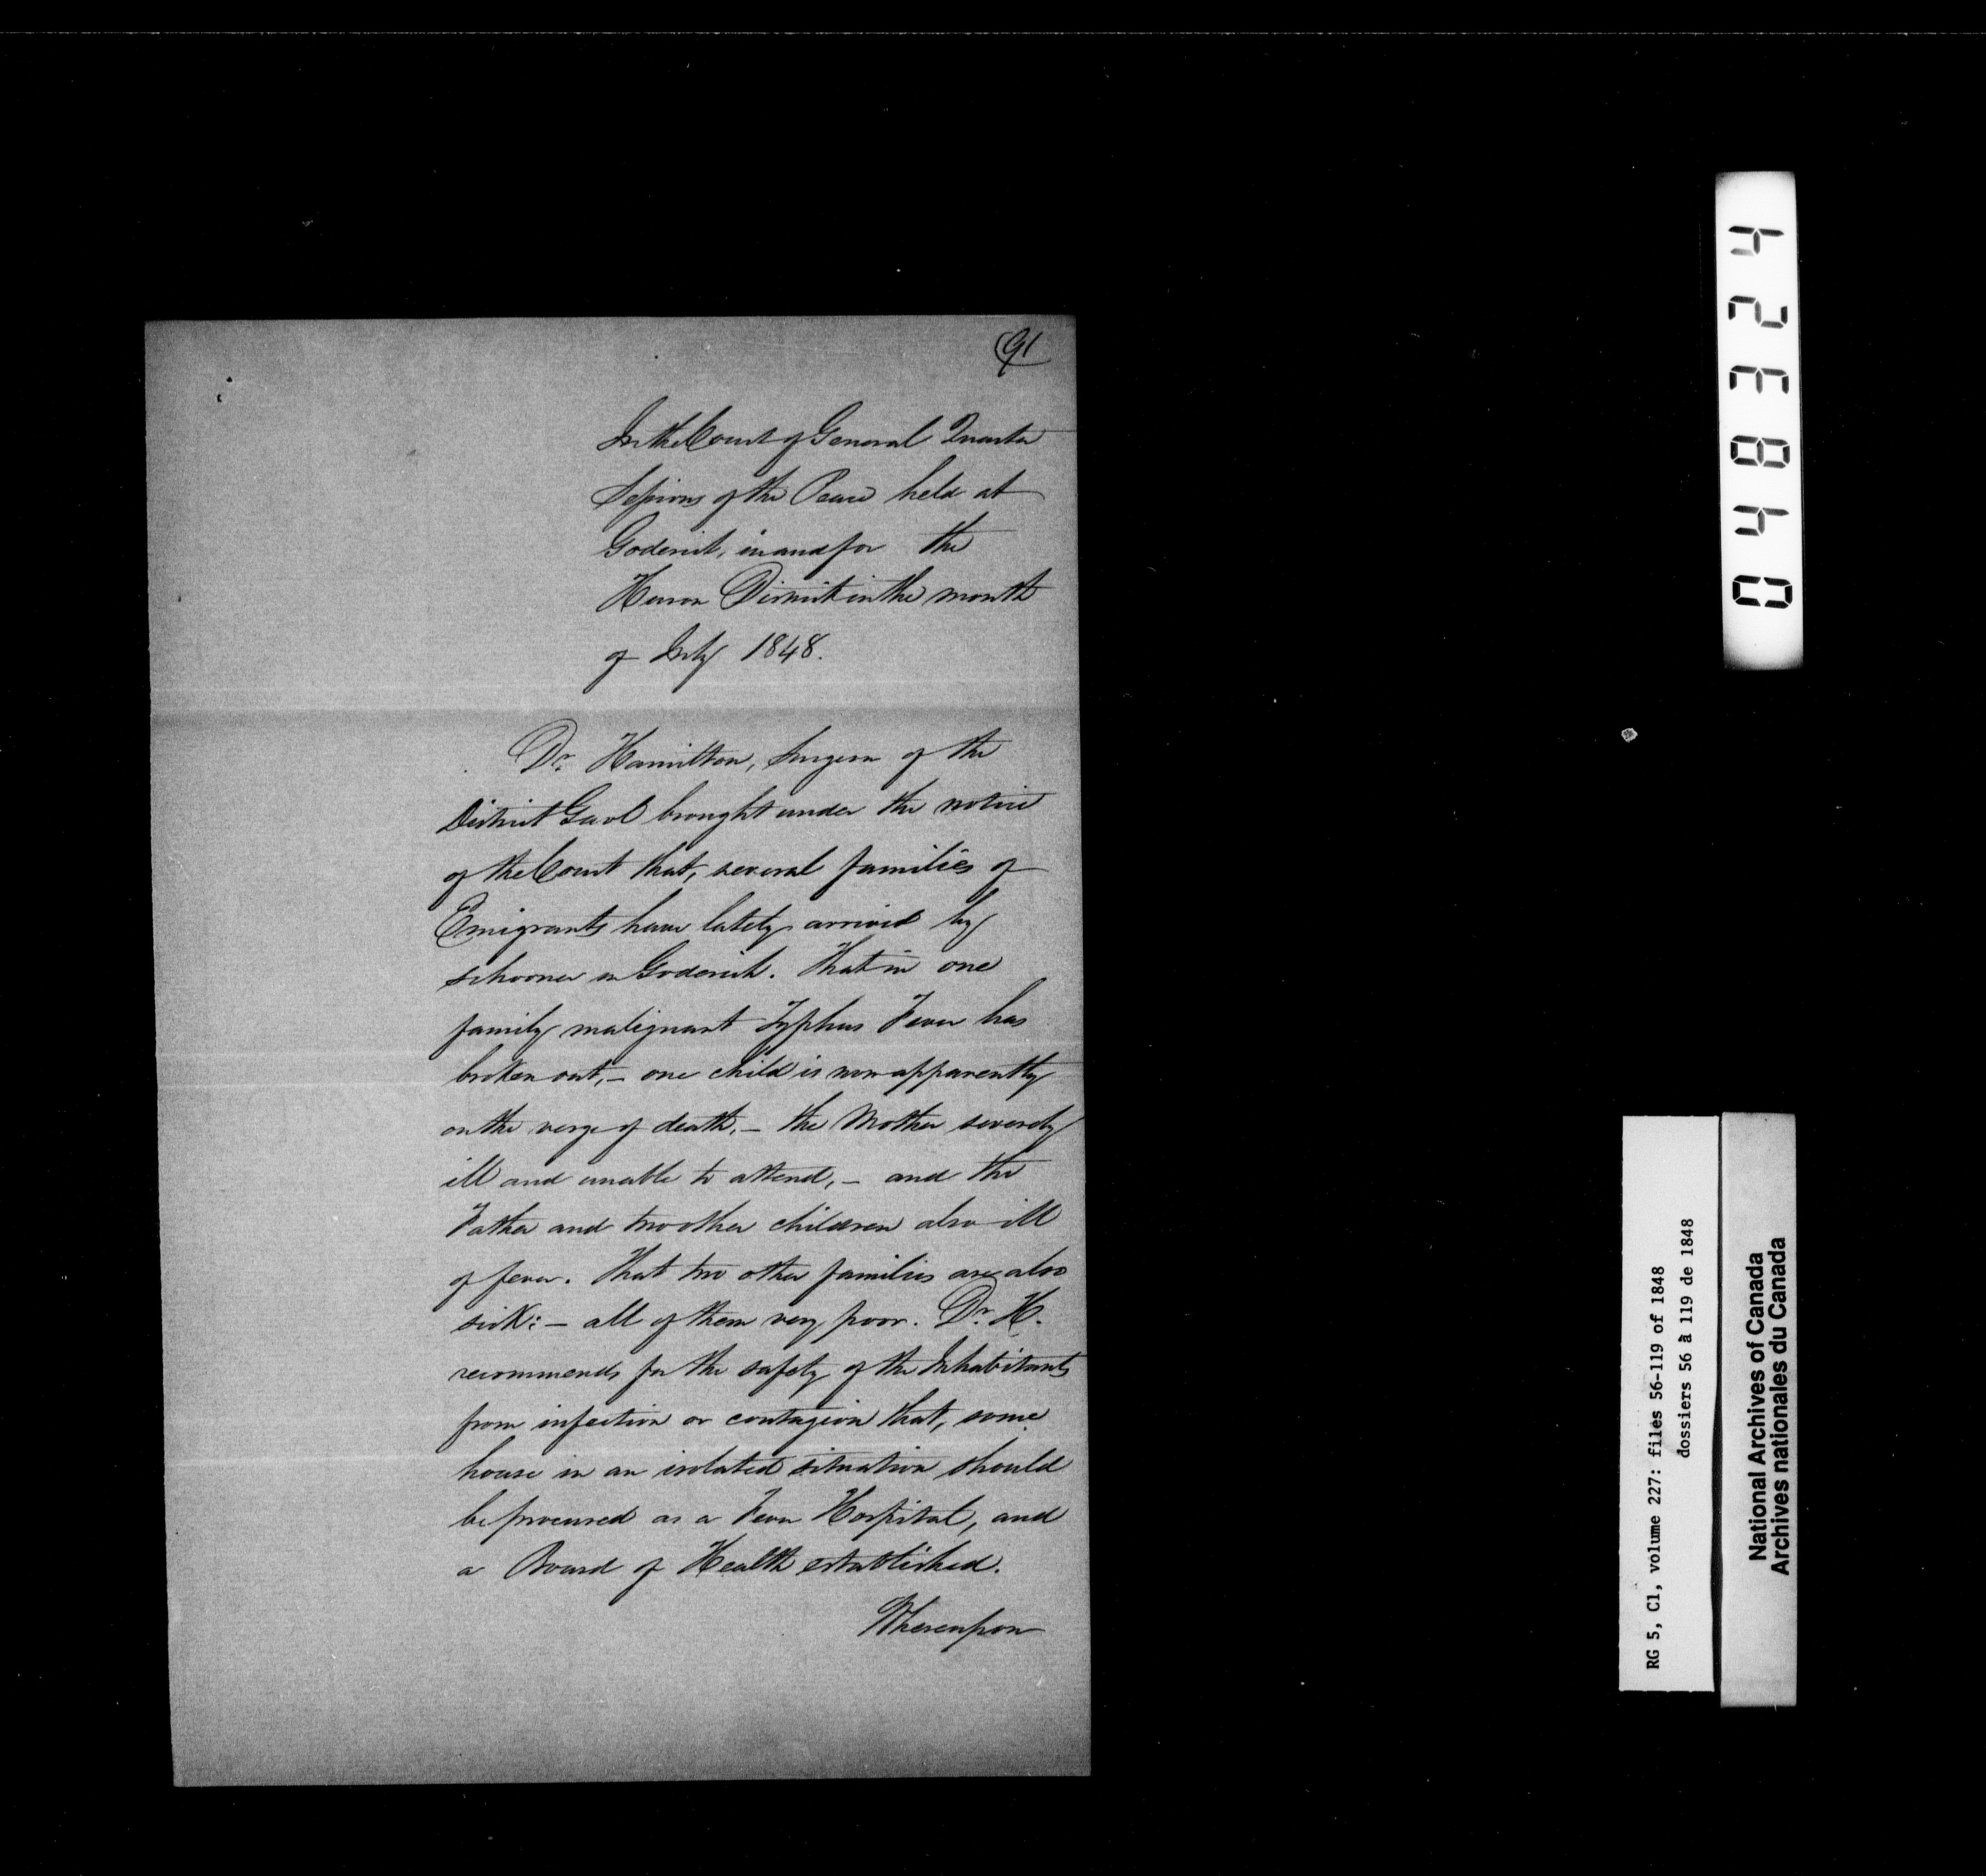 91
In the Court of General Quarter
Sessions of the Peace held at
Goderich, in and for the
Huron District in the month
of July 1848.
Dr. Hamilton, Surgeon of the
District Gaol brought under the notice
of the Court that, several families of
Emigrants have lately arrived by
schooner in Goderich. That in one
family malignant Typhus Fever has
broken out, – one child is now apparently
on the verge of death, – the Mother severely
ill and unable to attend, – and the
Father and two other children also ill
of fever. That two other families are also
sick: – all of them very poor. Dr. H.
recommends for the safety of the Inhabitants
from infection or contagion that, some
house in an isolated situation should
be procured as a Fever Hospital, and
a Board of Health established.
Whereupon
042384
RG 5, C1, volume 227: files 56-119 of 1848
dossiers 56 à 119 de 1848
National Archives of Canada
Archives nationales du Canada